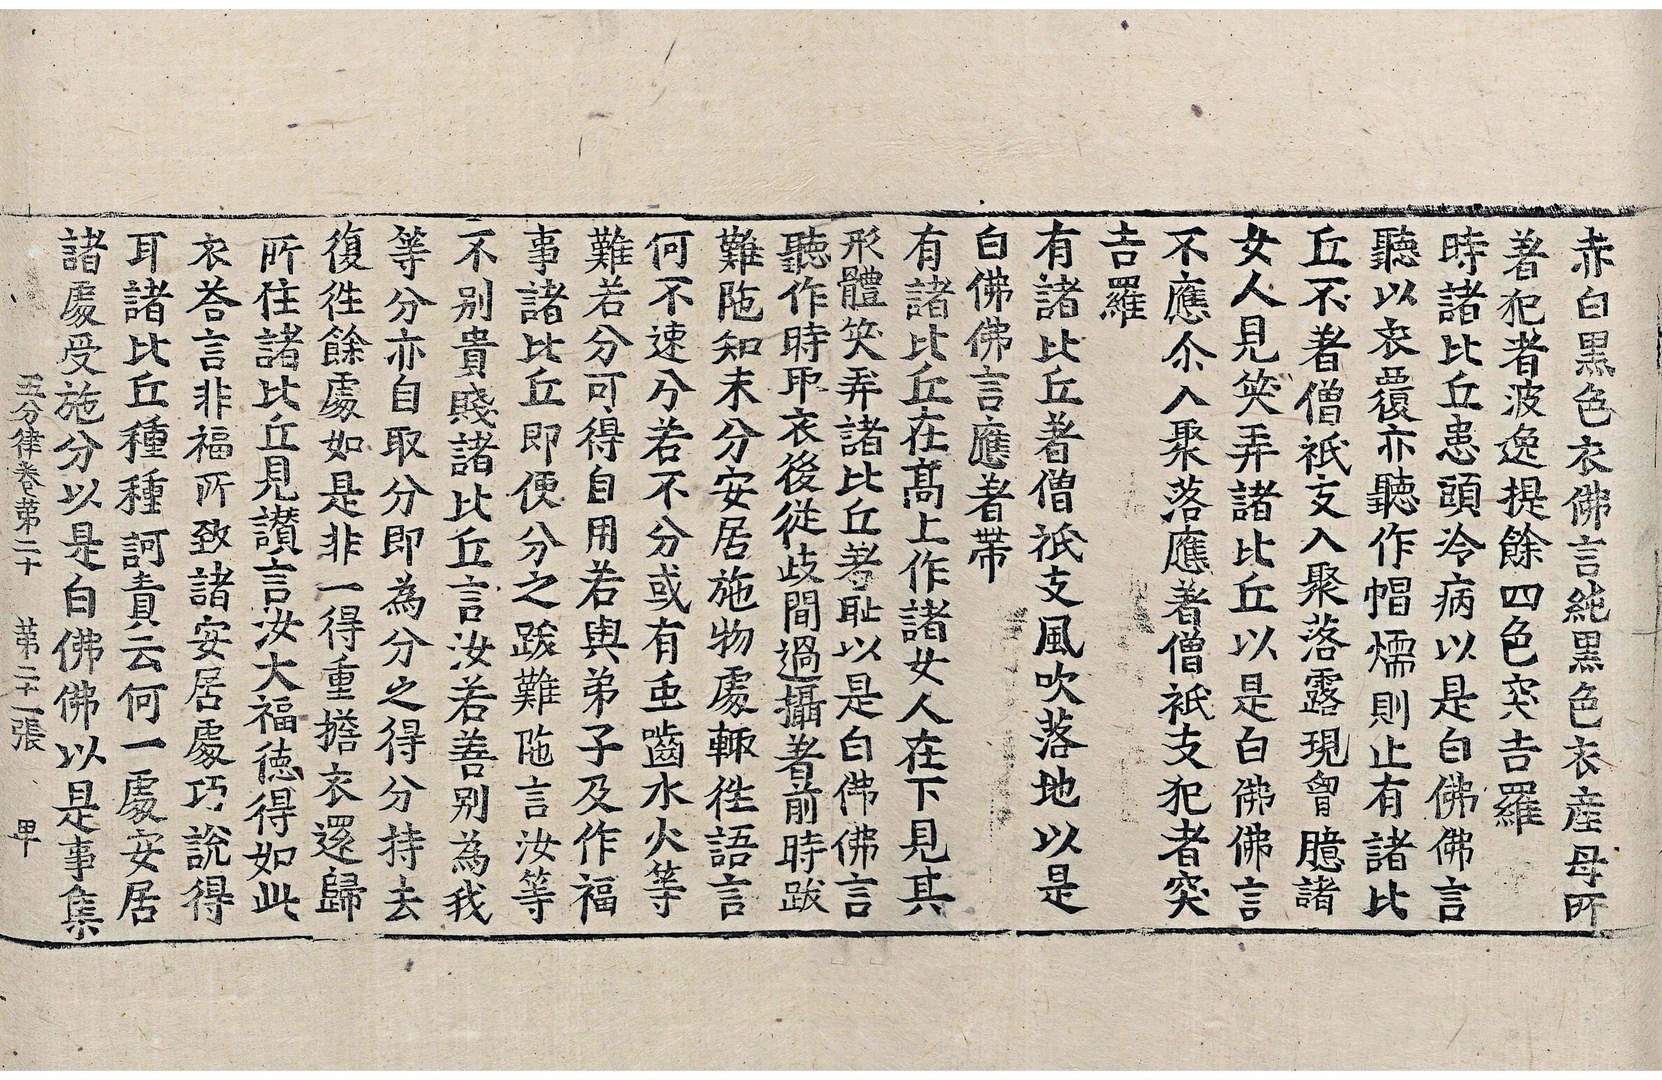 赤白黒色衣佛言純黒色衣産母所
著犯者波逸提餘四色突吉羅
時諸比丘患頭冷病以是白佛佛言
聽以衣覆亦聽作帽燸則止有諸比
丘不著僧祇支入聚落露現胷臆諸
女人見笑弄諸比丘以是白佛佛言
不應尒入聚落應著僧祇支犯者突
吉羅
有諸比丘著僧祇支風吹落地以是
白佛佛言應著帶
有諸比丘在髙上作諸女人在下見其
形體笑弄諸比丘著恥以是白佛佛言
聽作時取衣後從歧間過攝著前時跋
難陁知未分安居施物處輙往語言
何不速分若不分或有虫嚙水火等
難若分可得自用若與弟子及作福
事諸比丘即便分之跋難陁言汝等
不别貴賤諸比丘言汝若善别為我
等分亦自取分即為分之得分持去
復往餘處如是非一得重擔衣還歸
所住諸比丘見讃言汝大福德得如此
衣荅言非福所致諸安居處巧說得
耳諸比丘種種訶責云何一處安居
諸處受施分以是白佛佛以是事集
五分律卷第二十　第二十一張　甲